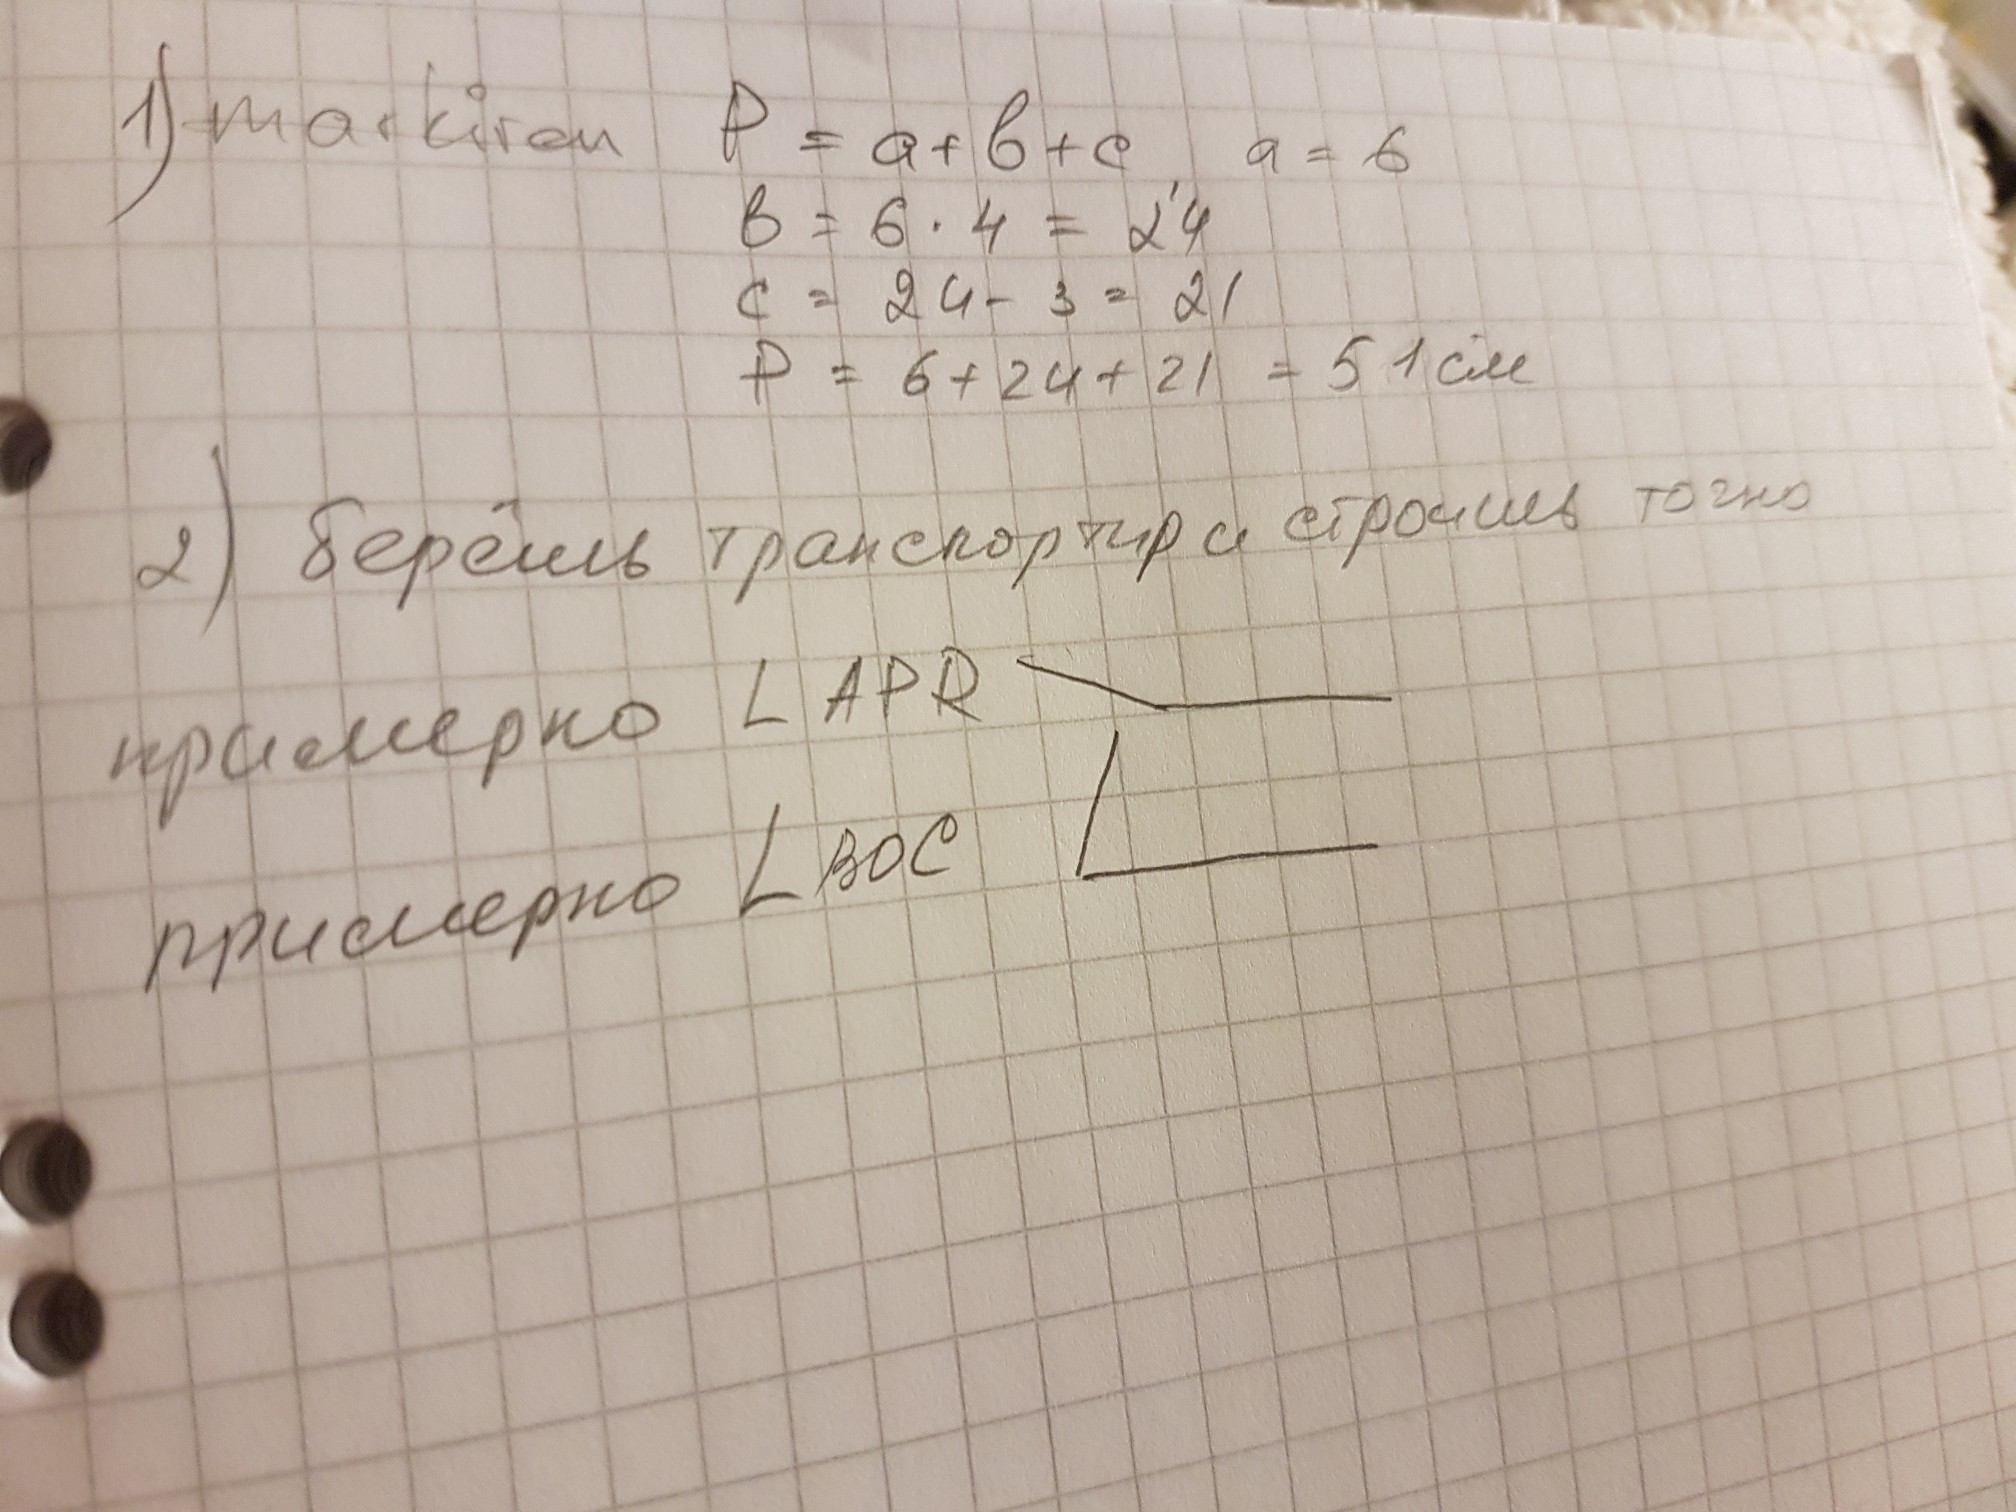 1) markiran P = a + в + c, a = 6
в = 6 · 4 = 24
c = 24 - 3 = 21
P = 6 + 24 + 21 = 51 см
2) берёшь транспортир и строишь точно
примерно ∠ APR
примерно ∠ BOC